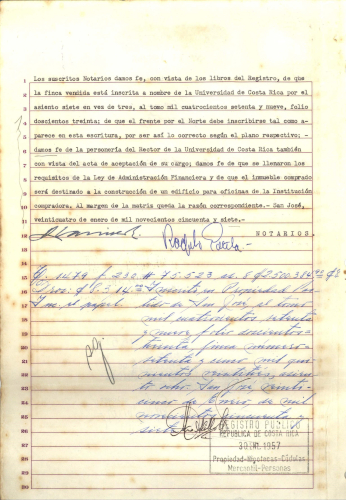 Los suscritos Notarios damos fe, con vista de los libros del Registro, de que
la finca vendida está inscrita a nombre de la Universidad de Costa Rica por el
asiento siete en vez de tres, al tomo mil cuatrocientos setenta y nueve, folio
doscientos treinta; de que el frente por el Norte debe inscribirse tal como a-
parece en esta escritura, por ser así lo correcto según el plano respectivo; -
damos fe de la personería del Rector de la Universidad de Costa Rica también
con vista del acta de aceptación de su cargo; damos fe de que se llenaron los
requisitos de la Ley de Administración Financiera y de que el inmueble comprado
será destinado a la construcción de un edificio para oficinas de la Institución
compradora. Al margen de la matriz queda la razón correspondiente.- San José,
veinticuatro de enero de mil novecientos cincuenta y siete.-
NOTARIOS.
1479 f. 230 # 75.523 as. 8
Inscrito en Propiedad Par-
tido de San José al tomo
mil cuatrocientos setenta
y nueve, folio doscientos
treinta finca número
setenta y cinco mil qui-
nientos veintitrés, asien-
to ocho. San José veinti-
cinco de Enero de mil
novecientos cincuenta y
siete
REGISTRO PUBLICO
REPUBLICA DE COSTA RICA
1957
Propiedad-Hipotecas-Cédulas
Mercantil-Personas